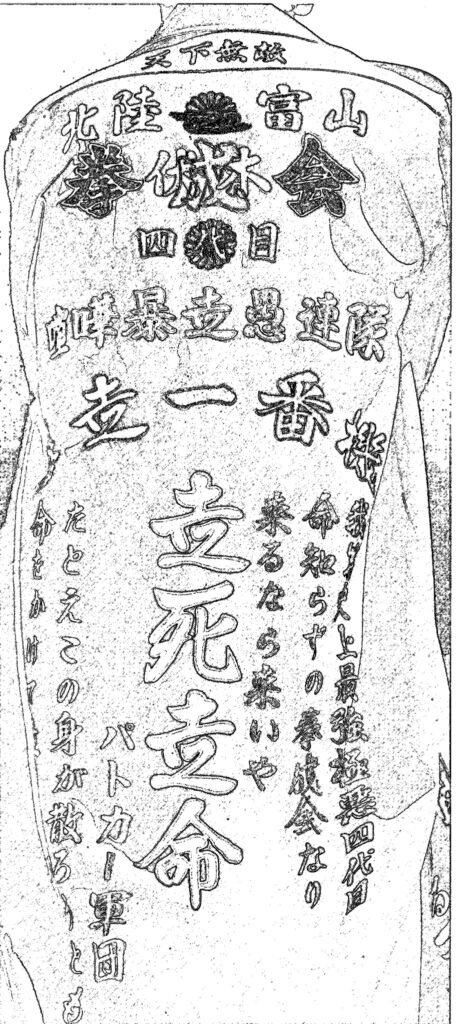 天下無敵
北陸富山
拳成会
伏木
四代目
喧嘩暴赱愚連隊
赱一番
上最強極悪四代目
命知らずの拳成会なり
来るなら来いや
赱死赱命
パトカー軍団
たとえこの身が散ろうとも
命をかけて